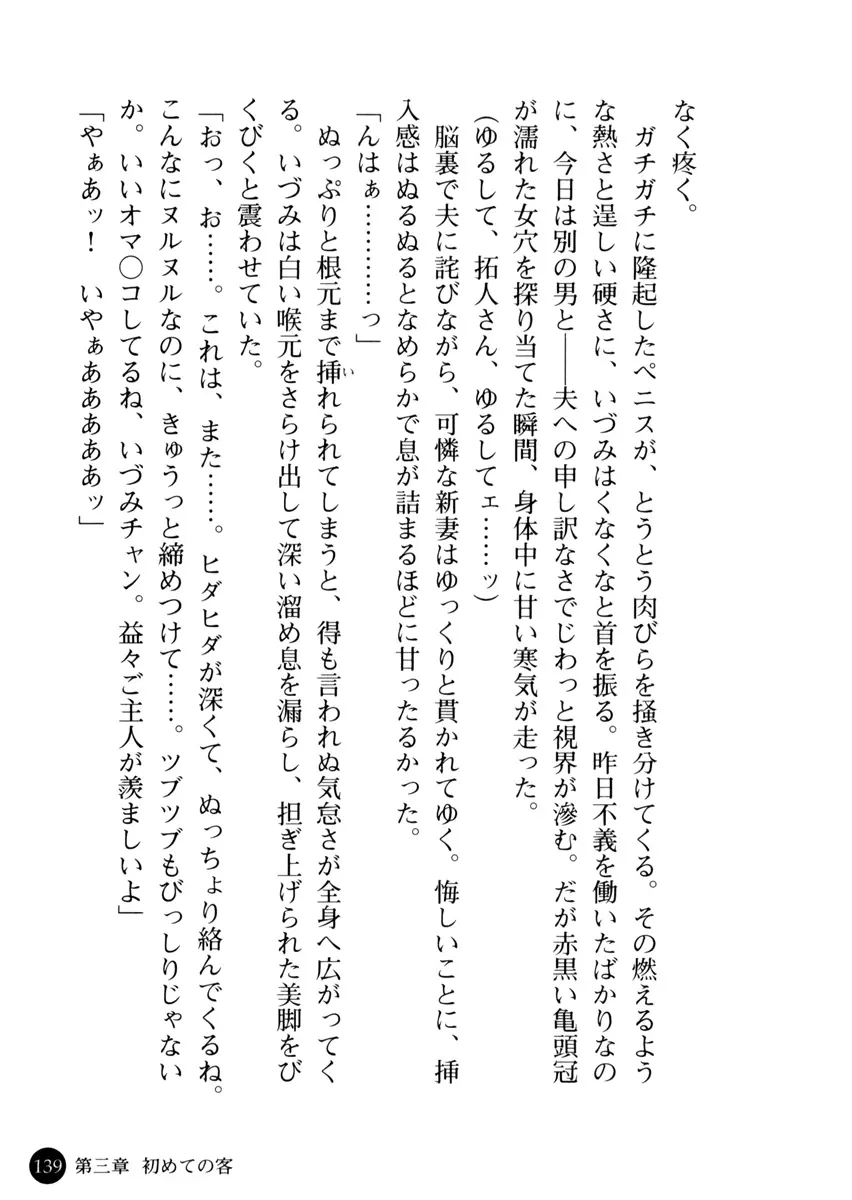 なく疼く。
　ガチガチに隆起したペニスが、とうとう肉びらを掻き分けてくる。その燃えるよう
な熱さと逞しい硬さに、いづみはくなくなと首を振る。昨日不義を働いたばかりなの
に、今日は別の男と――夫への申し訳なさでじわっと視界が滲む。だが赤黒い亀頭冠
が濡れた女穴を探り当てた瞬間、身体中に甘い寒気が走った。
（ゆるして、拓人さん、ゆるしてェ……ッ）
　脳裏で夫に詫びながら、可憐な新妻はゆっくりと貫かれてゆく。悔しいことに、挿
入感はぬるぬるとなめらかで息が詰まるほどに甘ったるかった。
「んはぁ…………っ」
　ぬっぷりと根元まで挿れられてしまうと、得も言われぬ気怠さが全身へ広がってく
い
る。いづみは白い喉元をさらけ出して深い溜め息を漏らし、担ぎ上げられた美脚をび
くびくと震わせていた。
「おっ、お……。これは、また……。ヒダヒダが深くて、ぬっちょり絡んでくるね。
こんなにヌルヌルなのに、きゅうっと締めつけて……。ツブツブもびっしりじゃない
か。いいオマ〇コしてるね、いづみチャン。益々ご主人が羨ましいよ」
「やぁあッ！　いやぁああああぁッ」
139 第三章 初めての客